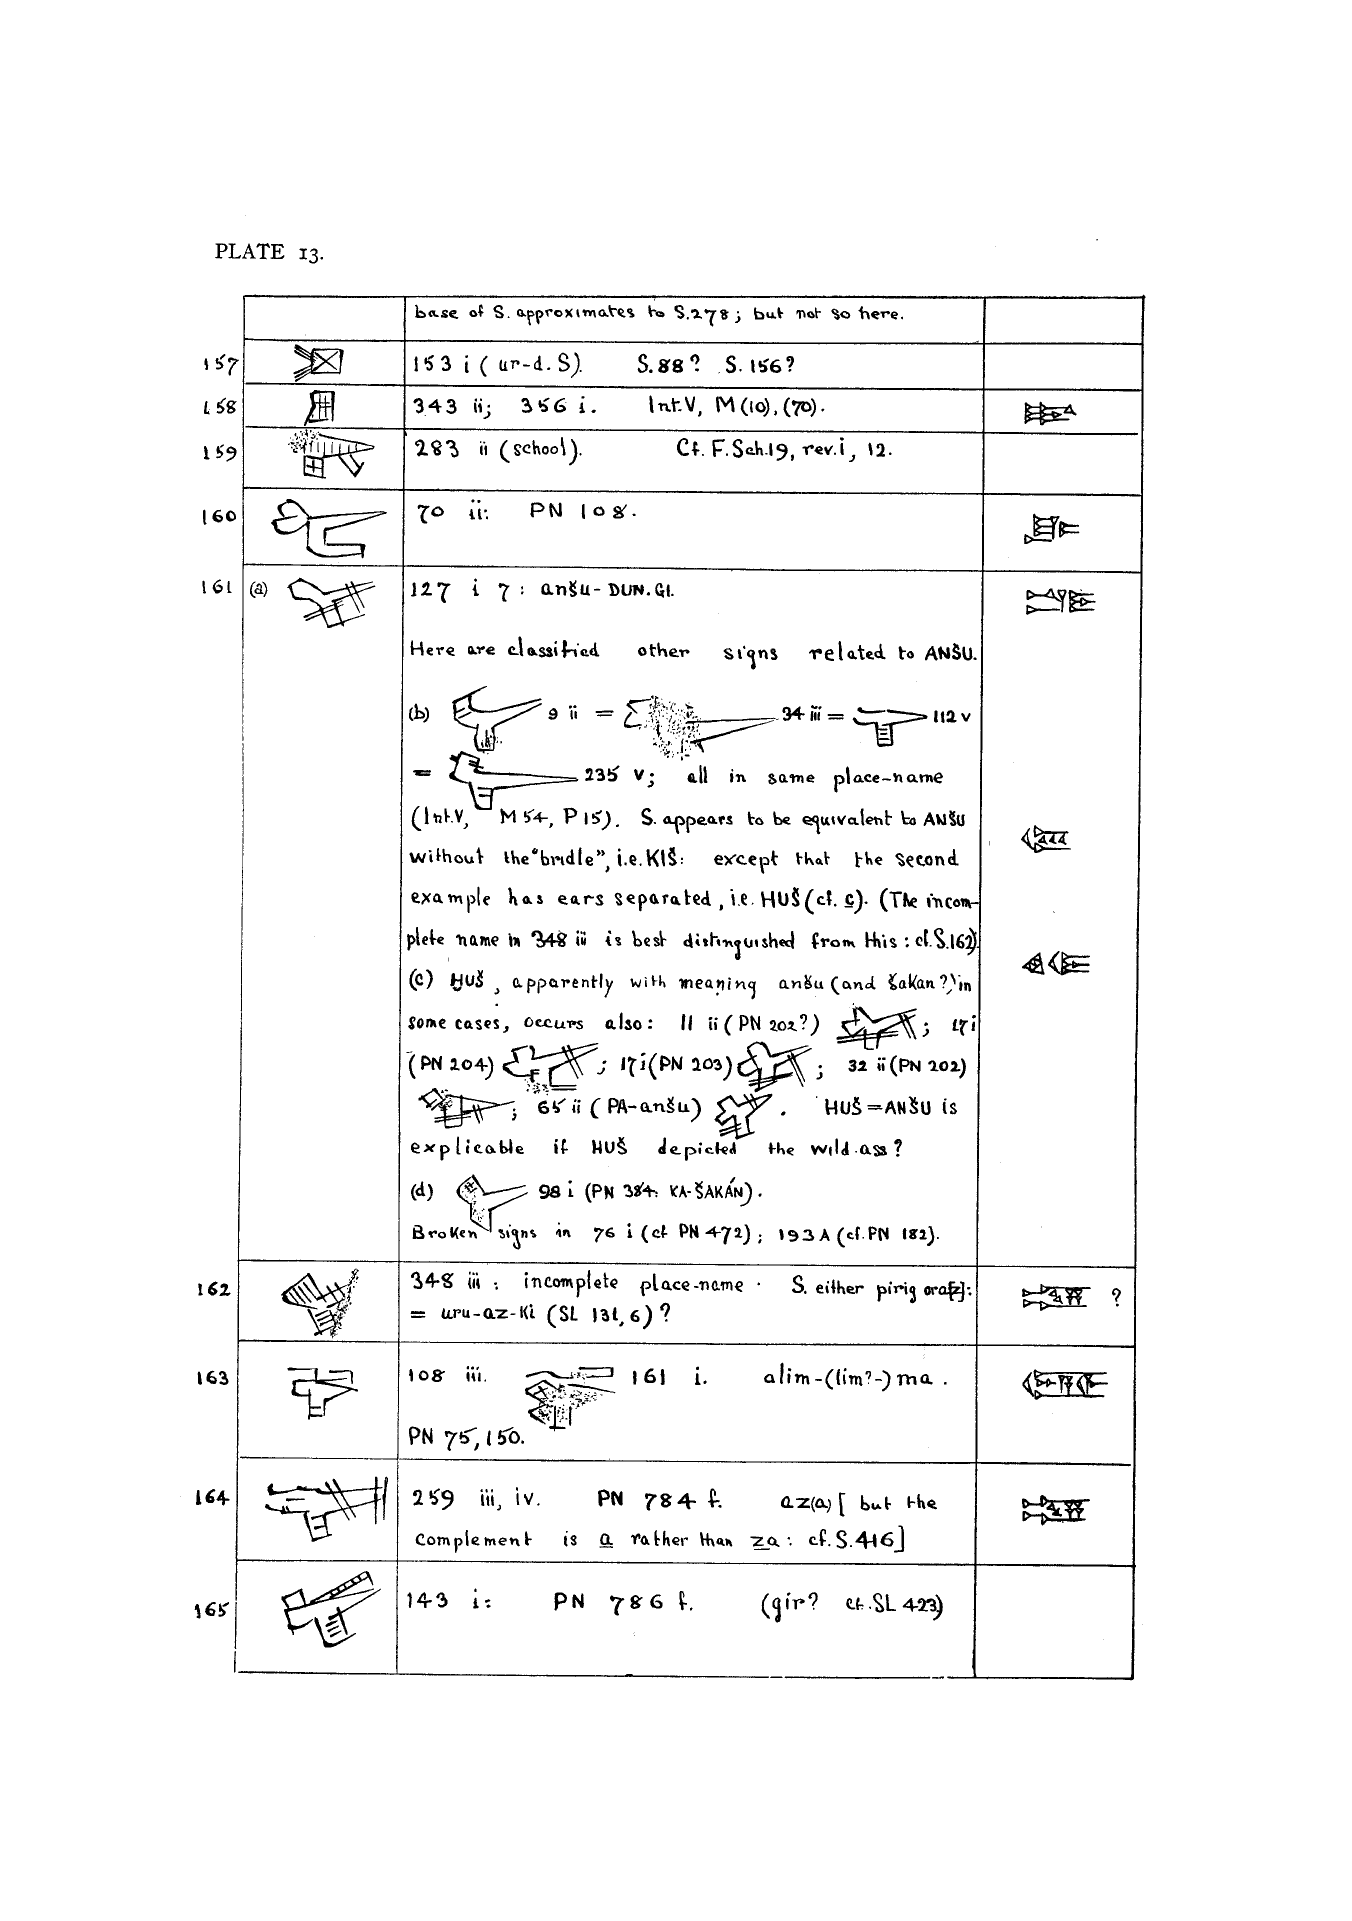 PLATE 13.
base of S. approximates to S.278; but not so here.
157 153 i (ur-d. S). S.88? S. 156?
158 343 ii; 356 i. Int.V, M(10), (70).
159 283 ii (school). Cf. F.Sch.19, rev.i, 12.
160 70 ii: PN 108.
161 (a) 127 i 7: anšu-DUN.GI.
Here are classified other signs related to ANŠU.
(b) 9 ii = 34 iii = 112 v
= 235 v; all in same place-name
(Int.V, M 54, P 15). S. appears to be equivalent to ANŠU
without the "bridle", i.e. KIŠ: except that the second
example has ears separated, i.e. HUŠ (cf. c). (The incom-
plete name in 348 iii is best distinguished from this: cf. S.162).
(c) HUŠ, apparently with meaning anšu (and šakan?) in
some cases, occurs also: 11 ii (PN 202?) ; 17 i
(PN 204) ; 17 i (PN 203) ; 32 ii (PN 202)
; 65 ii (PA-anšu) . HUŠ = ANŠU is
explicable if HUŠ depicted the wild-ass?
(d) 98 i (PN 384: KA-ŠAKÁN).
Broken signs in 76 i (cf PN 472); 193 A (cf. PN 182).
162 348 iii: incomplete place-name. S. either pirig or az]:
= uru-az-Ki (SL 131, 6)? ?
163 108 iii. 161 i. alim-(lim?-) ma.
PN 75, 150.
164 259 iii, iv. PN 784 f. az(a) [but the
complement is a rather than za: cf. S.416]
165 143 i: PN 786 f. (gir? cf. SL 423)